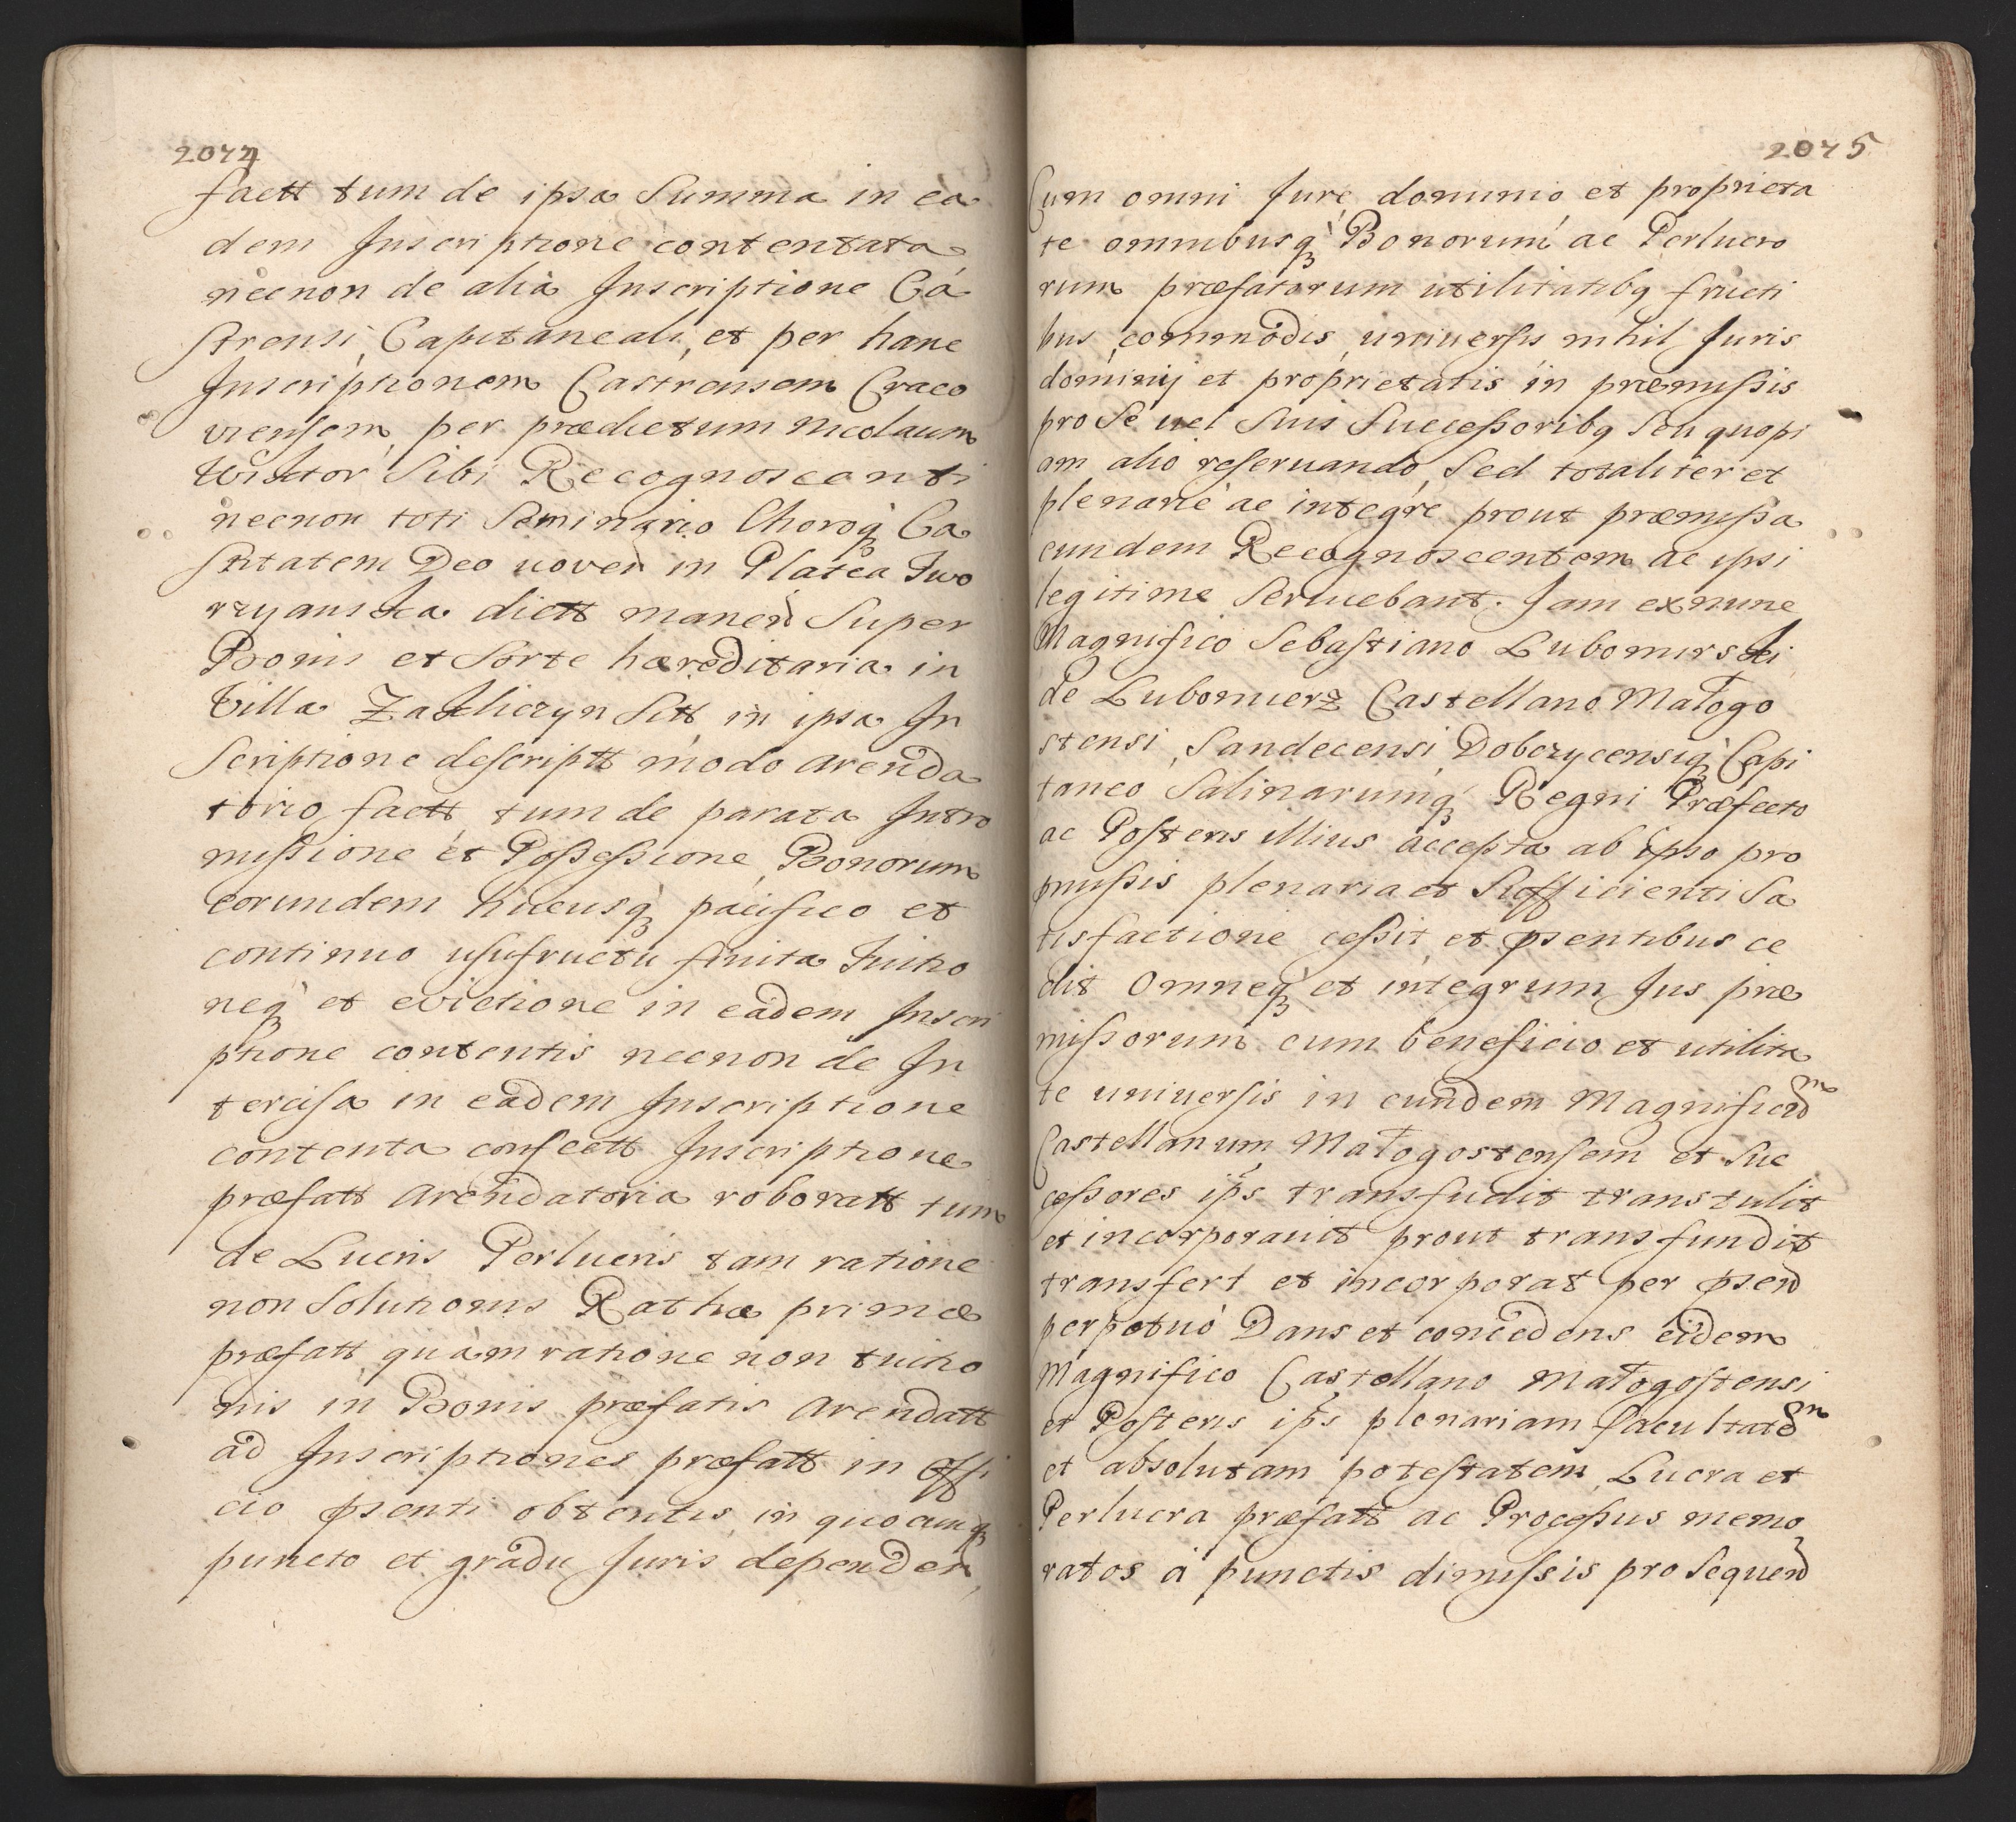 2074
factt tum de ipsa Summa in ea
dem Inscriptione contentata
necnon de alia Inscriptione Ca
strensi, Capitaneali, et per hanc
Inscriptionem Castrensem Craco
viensem, per prædictum Nicolaum
Wiktor Sibi Recognoscenti
necnon toti Seminario Choroq́ Ca
stitatem Deo voven̄ in Platea Two
rzyanska dictt manen̄ Super
Bonis et Sorte hæreditaria in
Villa Zakliczyn Sitt, in ipsa In
scriptione descriptt modo arenda
torio factt tum de parata Intro
missione et Possessione, Bonorum
eorundem hucusq́ pacifico et
continuo usufructu finita Tuitio
neq́ et evictione in eadem Inscri
ptione contentis necnon de In
tercisa in eadem Inscriptione
contenta confectt Inscriptione
præfatt Arendatoria roboratt tum
de Lucris Perlucris tam ratione
non Solutionis Rathæ primæ
præfatt quàm ratione non tuitio
nis in Bonis præfatis Arendatt
ad Inscriptiones præfatt in Offi
cio pȝsenti obtentis, in quocunq́
puncto et gradu Juris dependen̄,
2075
Cum omni Jure, dominio et proprieta
te omnibusq́ Bonorum ac Perlucro
rum præfatorum utilitatibq fructi
bus, commodis, universis nihil Juris
dominij et proprietatis in præmissis
pro Se vel Suis Successoribq Seu quopi
am alio reservando, Sed totaliter et
plenarie ac integre prout præmissa
eundem Recognoscentem ac ipsi
legitime Serviebant. Jam exnunc
Magnifico Sebastiano Lubomirski
de Lubomierz Castellano Małogo
stensi, Sandecensi, Dobczycensiq́ Capi
taneo Salinarumq́ Regni Præfecto
ac Posteris illius accepta ab ipso pro
pmissis plenaria et Sufficienti Sa
tisfactione cessit et pȝsentibus ce
dit Omneq́ et integrum Jus præ
missorum cum beneficio et utilita
te universis in eundem Magnificū
Castellanum Małogostensem et Suc
cessores ips transfudit transtulit
et incorporavit prout transfundit
transfert et incorporat per pȝsen̄
perpetuo Dans et concedens eidem
Magnifico Castellano Małogostensi
et Posteris ips plenariam facultatē
et absolutam potestatem, Lucra et
Perlucra præfatt ac Processus memo
ratos à punctis dimissis prosequen̄